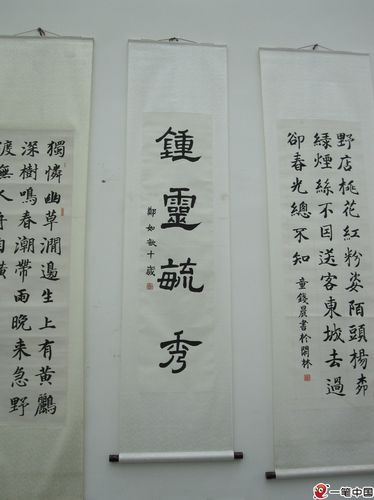 野店桃花紅粉姿陌頭楊柳
綠煙絲不因送客東城去過
卻春光總不知
童錢晨書於閑林
鍾靈毓秀
鄭如歆十歲
獨憐幽草澗邊生上有黃鸝
深樹鳴春潮帶雨晚來急野
渡無人舟自橫
一笔中国